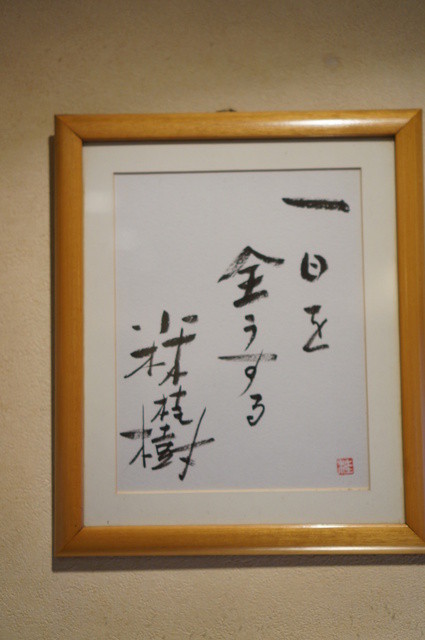 一日を
全うする
小林桂樹